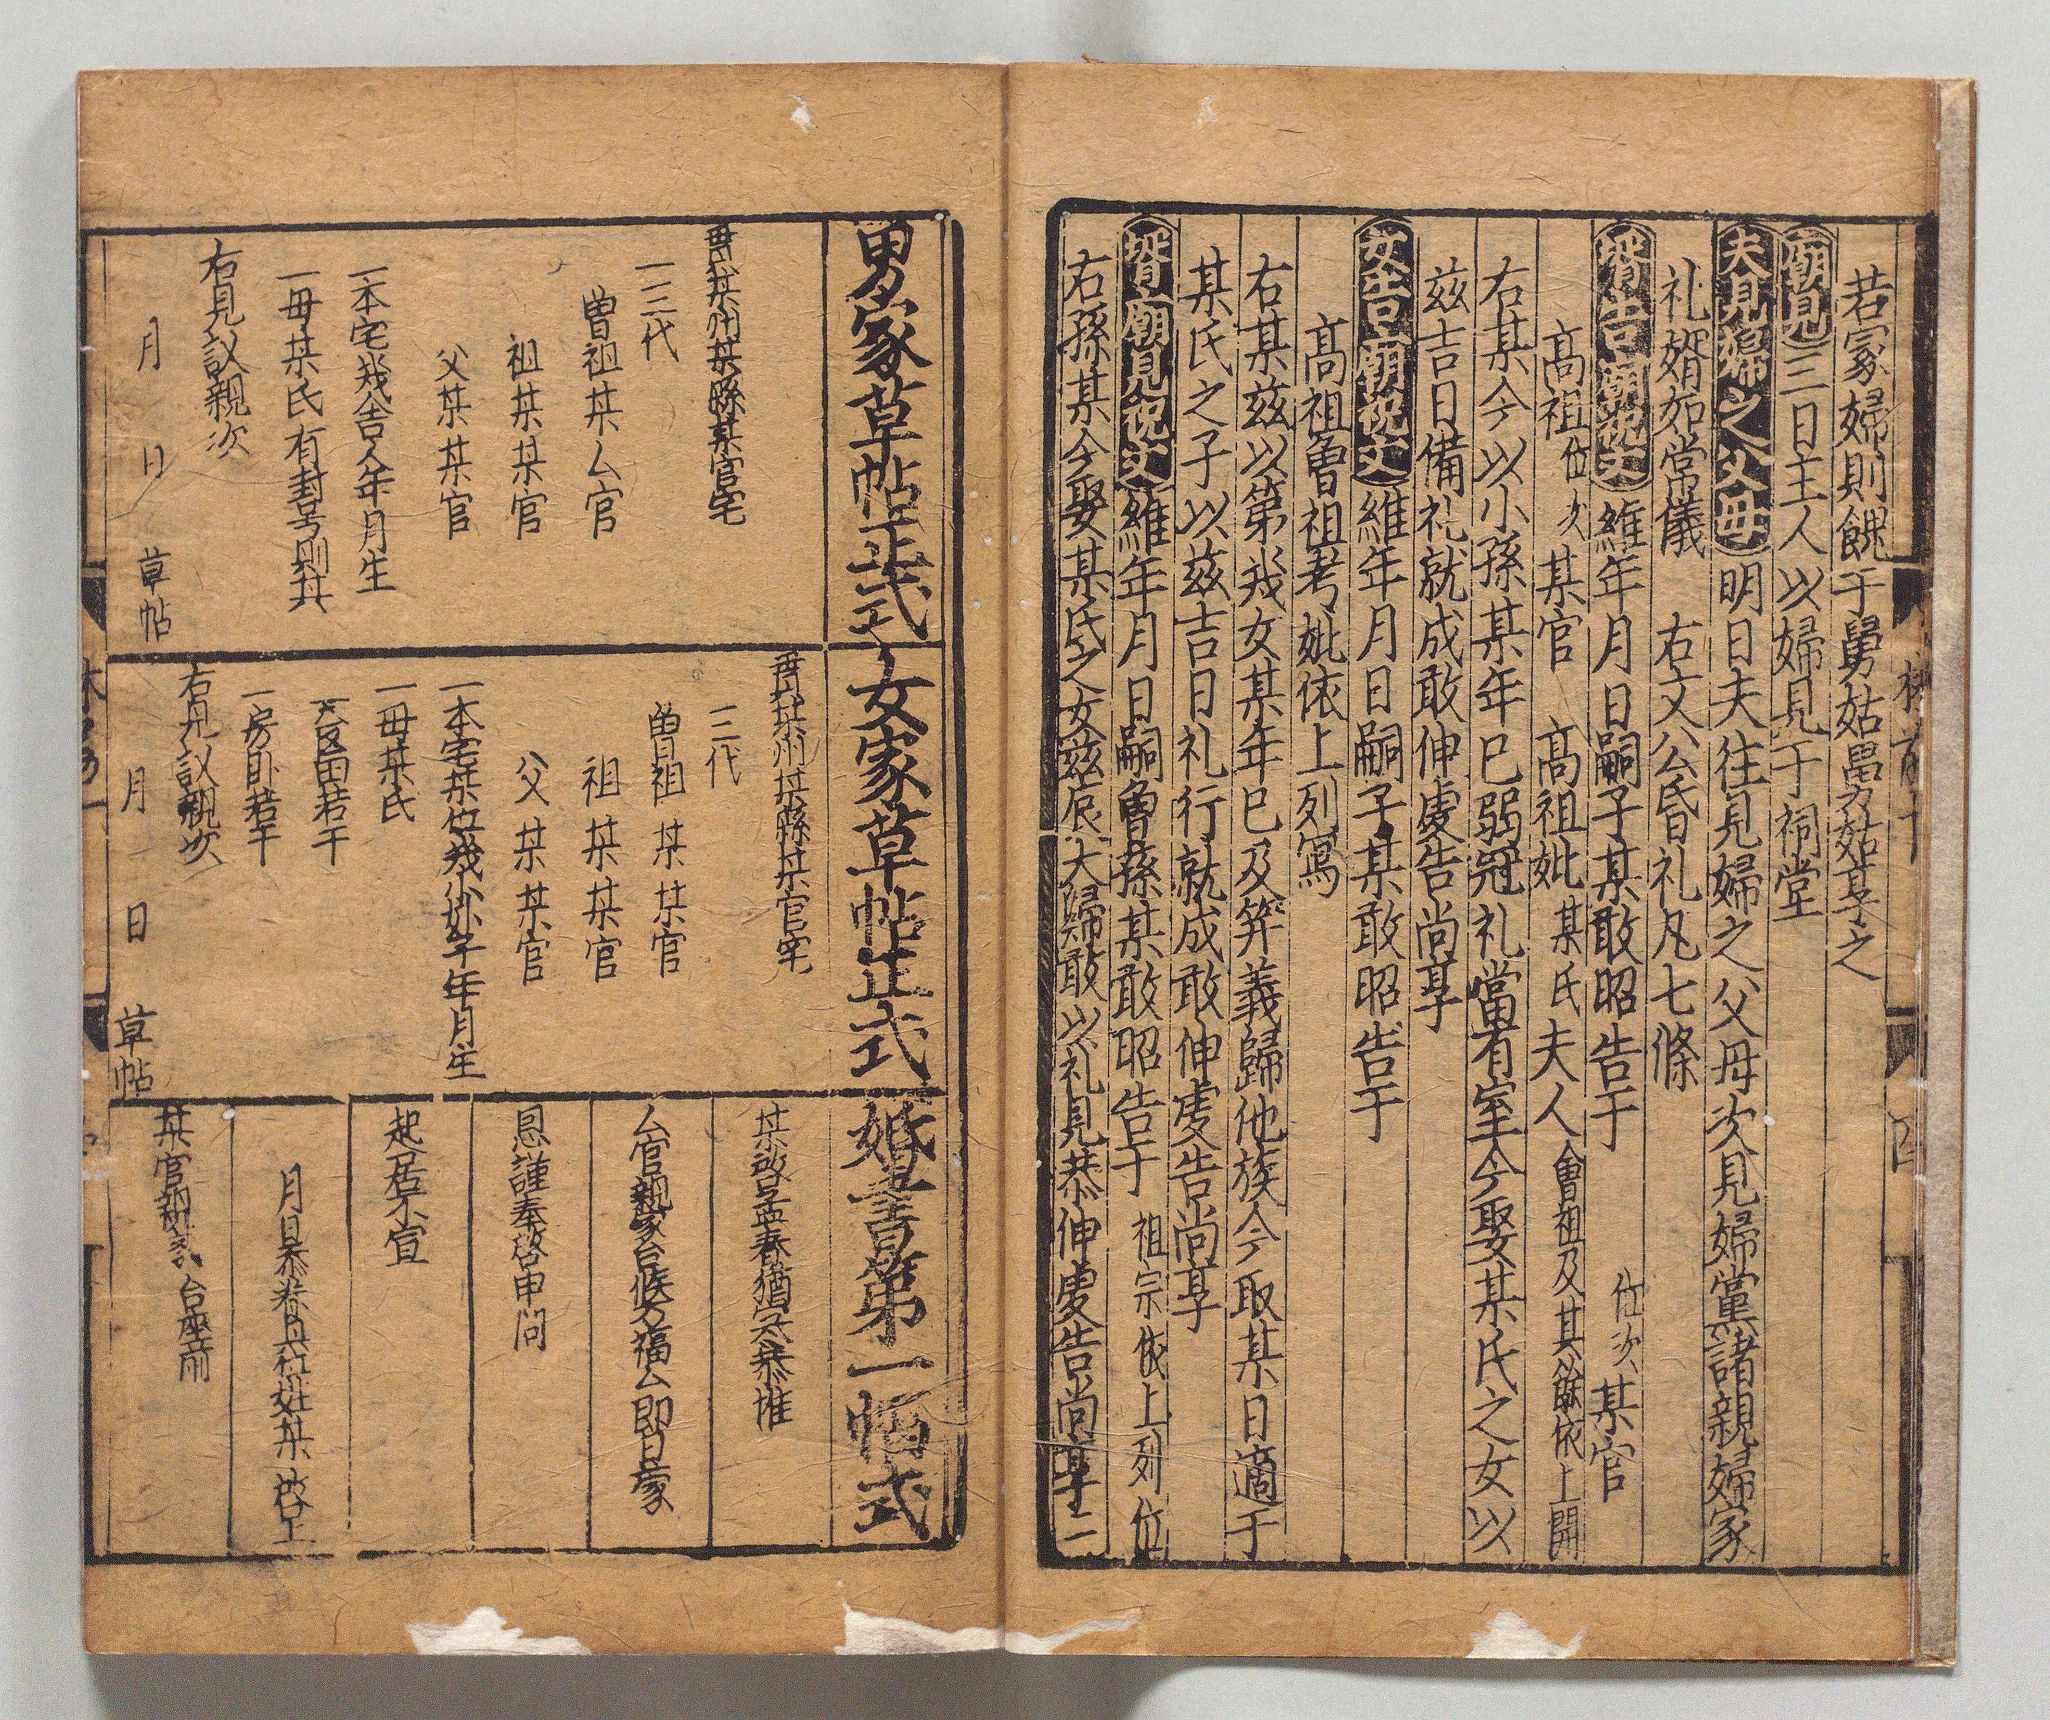 若冢婦則餽于舅姑舅姑享之
廟見三日主人以婦見于祠堂
夫見婦之父母明日夫往見婦之父母次見婦黨諸親婦家
礼婿如常儀　右文公昏礼凡七條
壻告廟祝文維年月日嗣子某敢昭告于　仕次某官
高祖仕次某官　高祖妣某氏夫人曾祖及其餘依上開
右某今以小孫某年已弱冠礼當有室今娶某氏之女以
兹吉日備礼就成敢伸虔告尚享
女告廟祝文維年月日嗣子某敢昭告于
高祖曾祖考妣依上列寫
右某兹以第幾女某年已及笄義歸他族今取某日適于
某氏之子以兹吉日礼行就成敢伸虔告尚享
壻廟見祝文維年月日嗣曾孫某敢昭告于祖宗依上列位
右孫某今娶某氏之女兹辰大歸敢以礼見恭伸虔告尚享二
男家草帖正式
某州某縣某官宅
一三代
曽祖某厶官
祖某某官
父某某官
一本宅幾舍人年月生
一母某氏有封号則具
右見議親次
月　日　草帖
女家草帖正式
某州某縣某官宅
三代
曽祖某某官
祖某某官
父某某官
一本宅某位幾小娘子年月生
一母某氏
一奩田若干
一房卧若干
右見議親次
月　日　草帖
婚書第一幅式
某啓孟春猶寒恭惟
厶官親家台候万福厶即日蒙
恩謹奉啓申問
起居不宣
月日忝眷具位姓某啓上
某官親家台座前